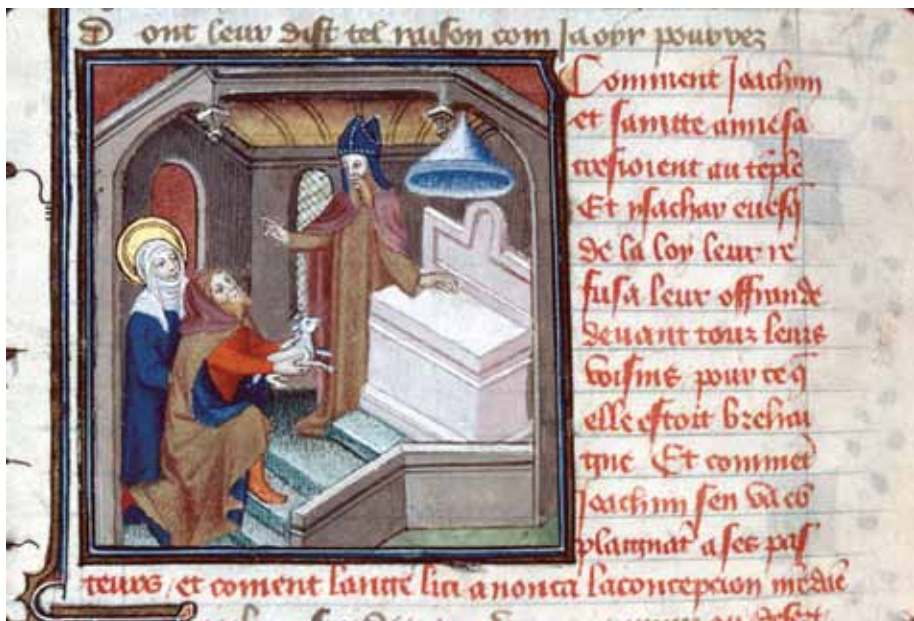 Dont leur dist tel raison com ja oyr pourrez
Comment Joachim
et saincte anne sa
au tēple
Et ysachar euesq̄
de la loy leur re
fusa leur offrande
deuant touz leurs
voisins pour ce q̄
elle estoit brehai
gne Et comment
Joachim sen va cō
plaignāt a ses pas
teurs / et coment lange lui anonca laconcepcion